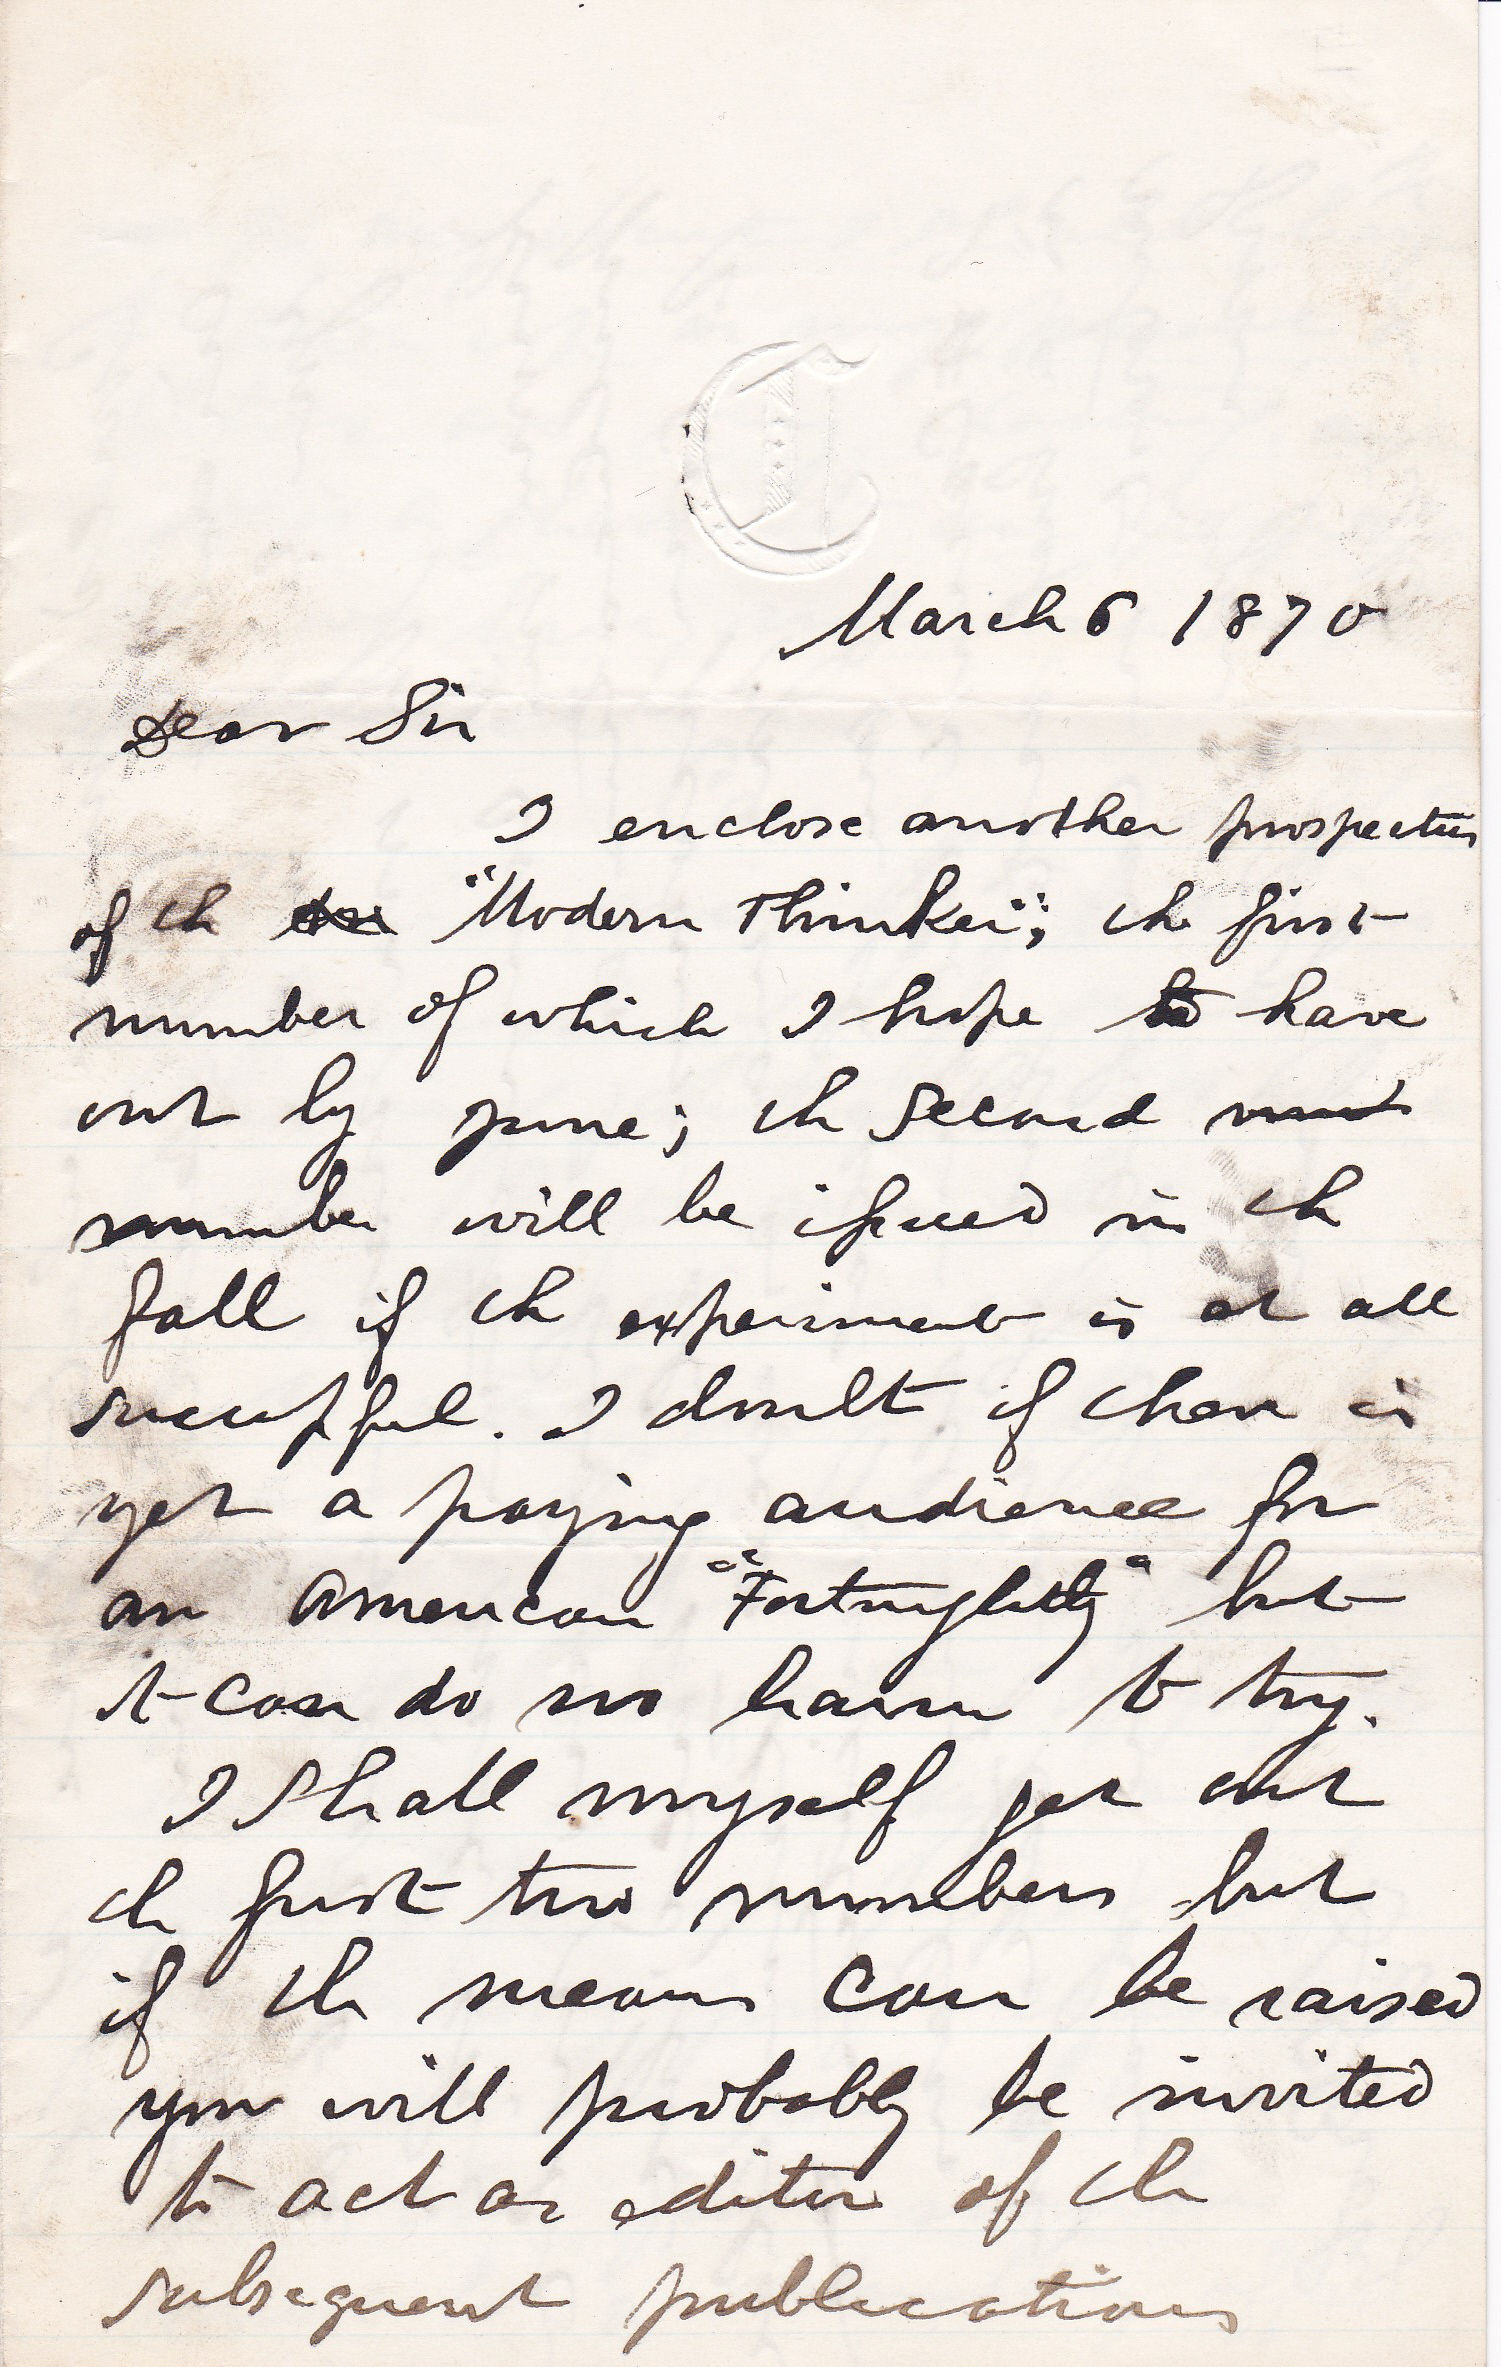 March 6 1870
Dear Sir
I enclose another prospectus
of th "Modern Thinker"; th first
number of which I hope to have
out by June; th second
number will be issued in th
fall if th experiment is at all
successful. I doubt if there is
yet a paying audience for
an American "Fortnightly" but
it can do no harm to try.
I shall myself get out
th first two numbers but
if th means can be raised
you will probably be invited
to act as editor of th
subsequent publications